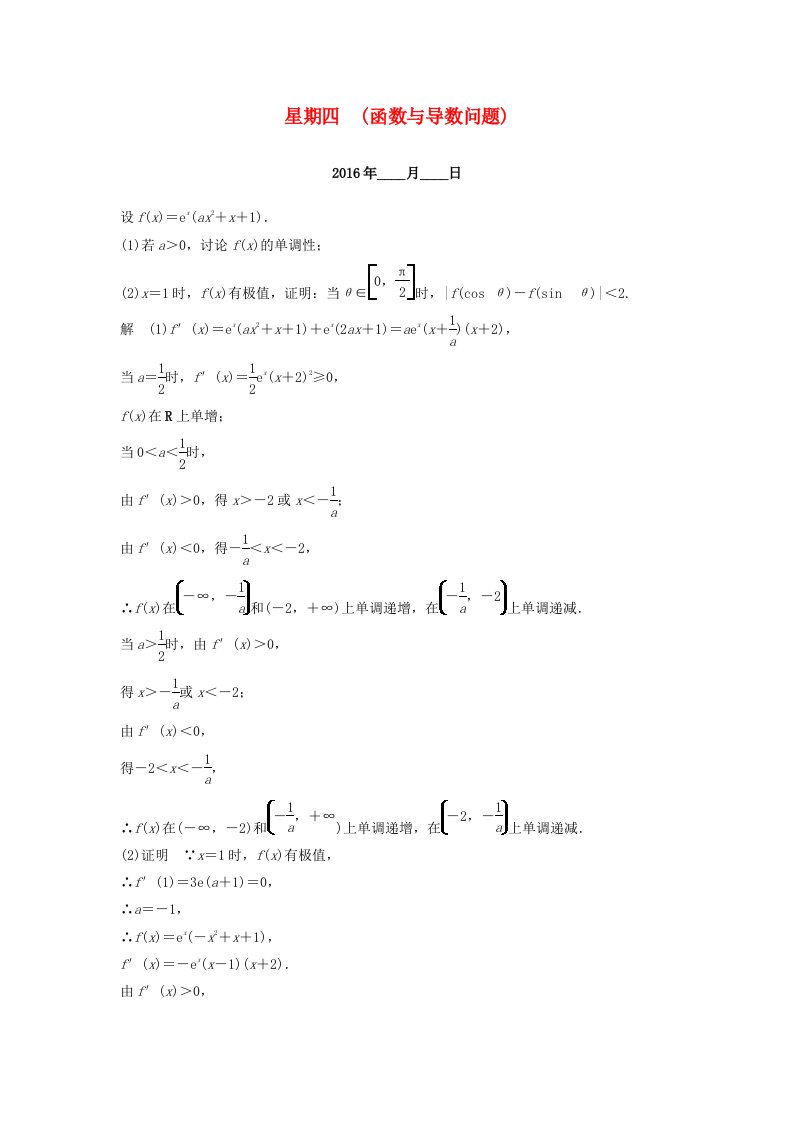 星期四　(函数与导数问题)
2016年____月____日
设f(x)＝eˣ(ax²＋x＋1).
(1)若a＞0，讨论f(x)的单调性；
(2)x＝1时，f(x)有极值，证明：当θ∈[0，π/2]时，|f(cos θ)－f(sin θ)|＜2.
解　(1)f′(x)＝eˣ(ax²＋x＋1)＋eˣ(2ax＋1)＝aeˣ(x＋1/a)(x＋2)，
当a＝1/2时，f′(x)＝1/2eˣ(x＋2)²≥0，
f(x)在R上单增；
当0＜a＜1/2时，
由f′(x)＞0，得x＞－2或x＜－1/a；
由f′(x)＜0，得－1/a＜x＜－2，
∴f(x)在(－∞，－1/a)和(－2，＋∞)上单调递增，在(－1/a，－2)上单调递减.
当a＞1/2时，由f′(x)＞0，
得x＞－1/a或x＜－2；
由f′(x)＜0，
得－2＜x＜－1/a，
∴f(x)在(－∞，－2)和(－1/a，＋∞)上单调递增，在(－2，－1/a)上单调递减.
(2)证明　∵x＝1时，f(x)有极值，
∴f′(1)＝3e(a＋1)＝0，
∴a＝－1，
∴f(x)＝eˣ(－x²＋x＋1)，
f′(x)＝－eˣ(x－1)(x＋2).
由f′(x)＞0，